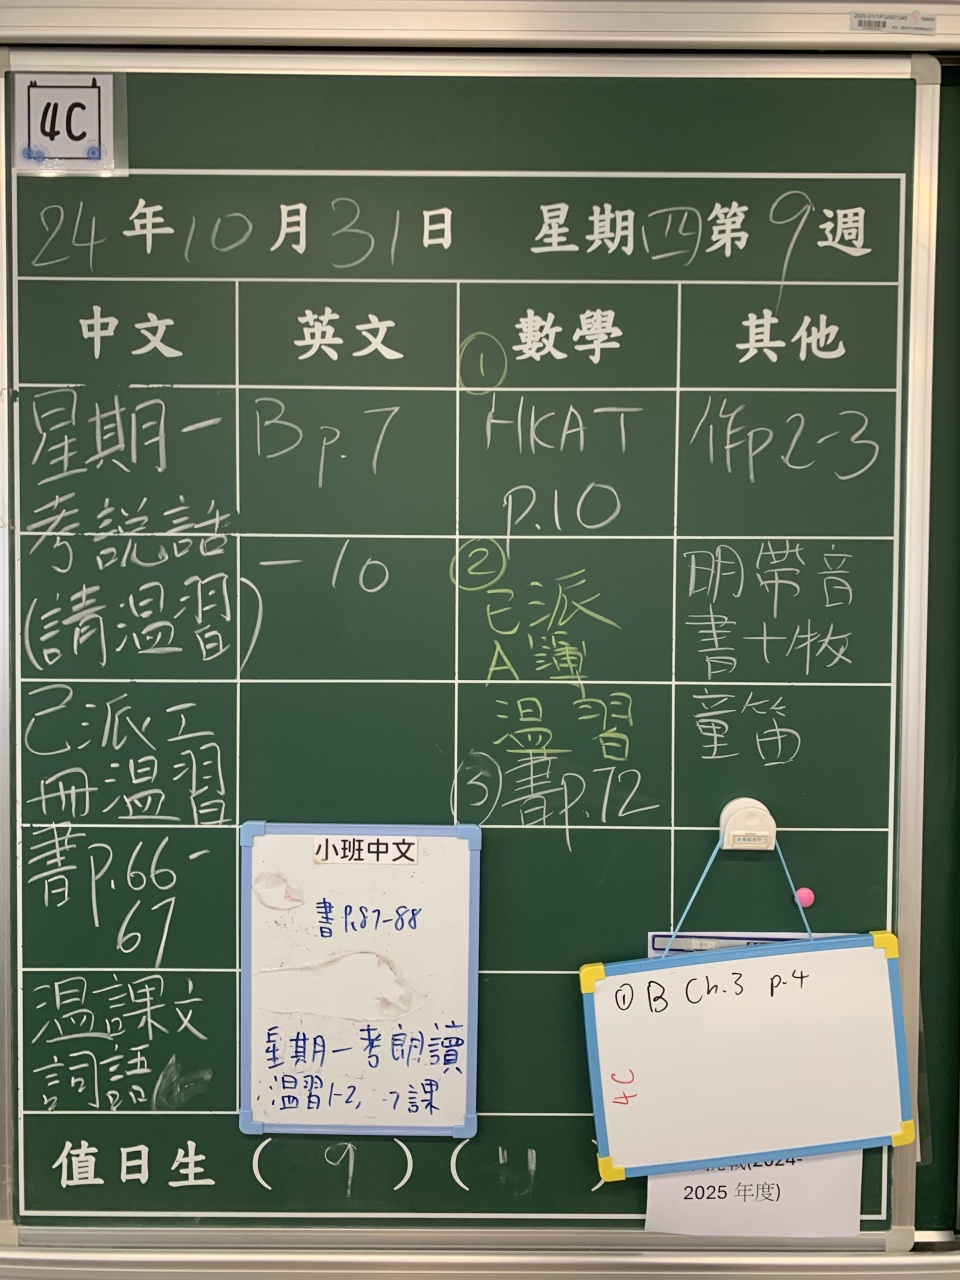 4C
24年10月31日 星期四第9週
中文 英文 數學 其他
星期一
考説話
(請温習)
己派工
冊温習
書p.66-
67
温課文
詞語
B p.7
-10
①
HKAT
p.10
②
已派
A簿
温習
③書p.72
作p2-3
明帶音
書十牧
童笛
小班中文
書P.87-88
星期一考朗讀
温習1-2, -7課
①B Ch.3 p.4
4C
(2024-
2025 年度)
值日生 (9) (4)